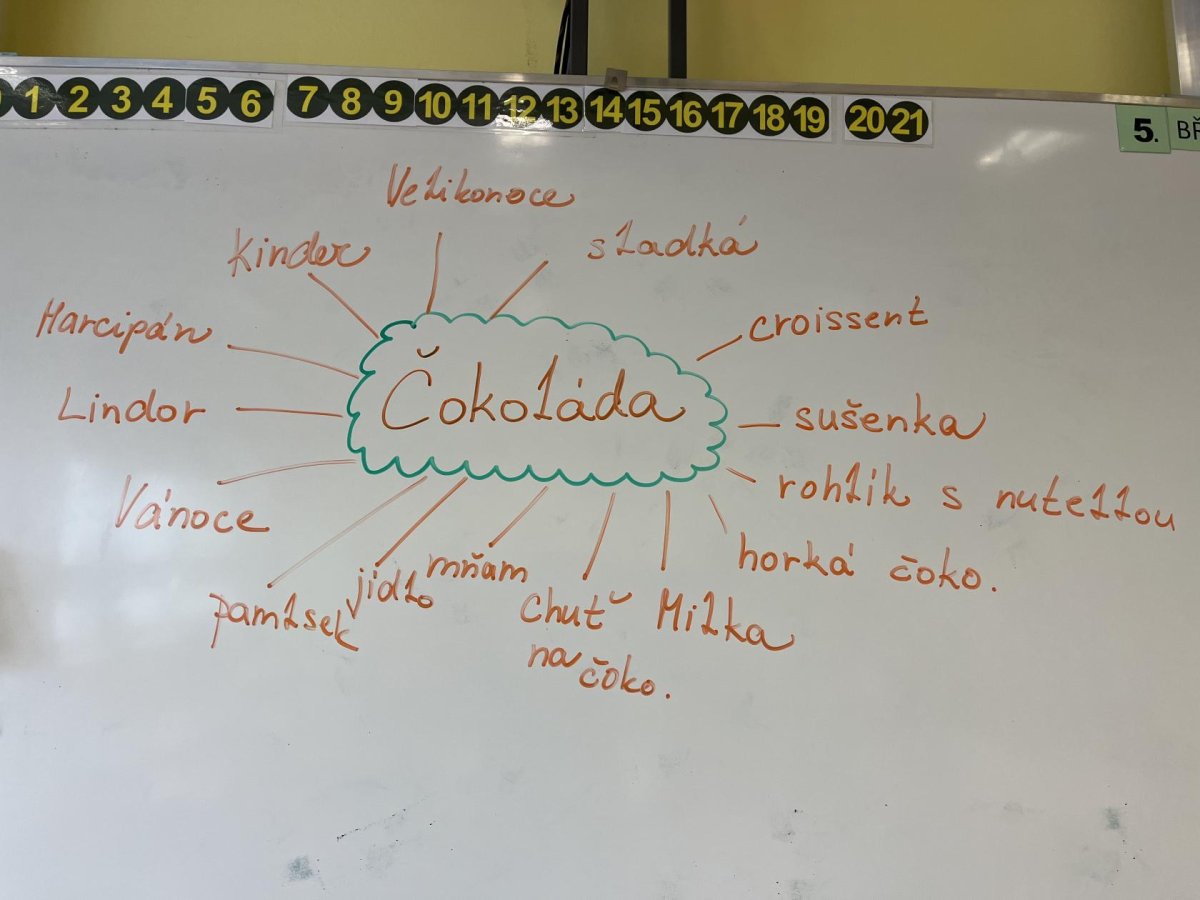 1 2 3 4 5 6 7 8 9 10 11 12 13 14 15 16 17 18 19 20 21
5. BŘ
Velikonoce
kinder
sladká
Marcipán
croissent
Čokoláda
Lindor
sušenka
Vánoce
rohlík s nutellou
horká čoko.
pamlsek
jídlo
mňam
Chuť
na čoko.
Milka